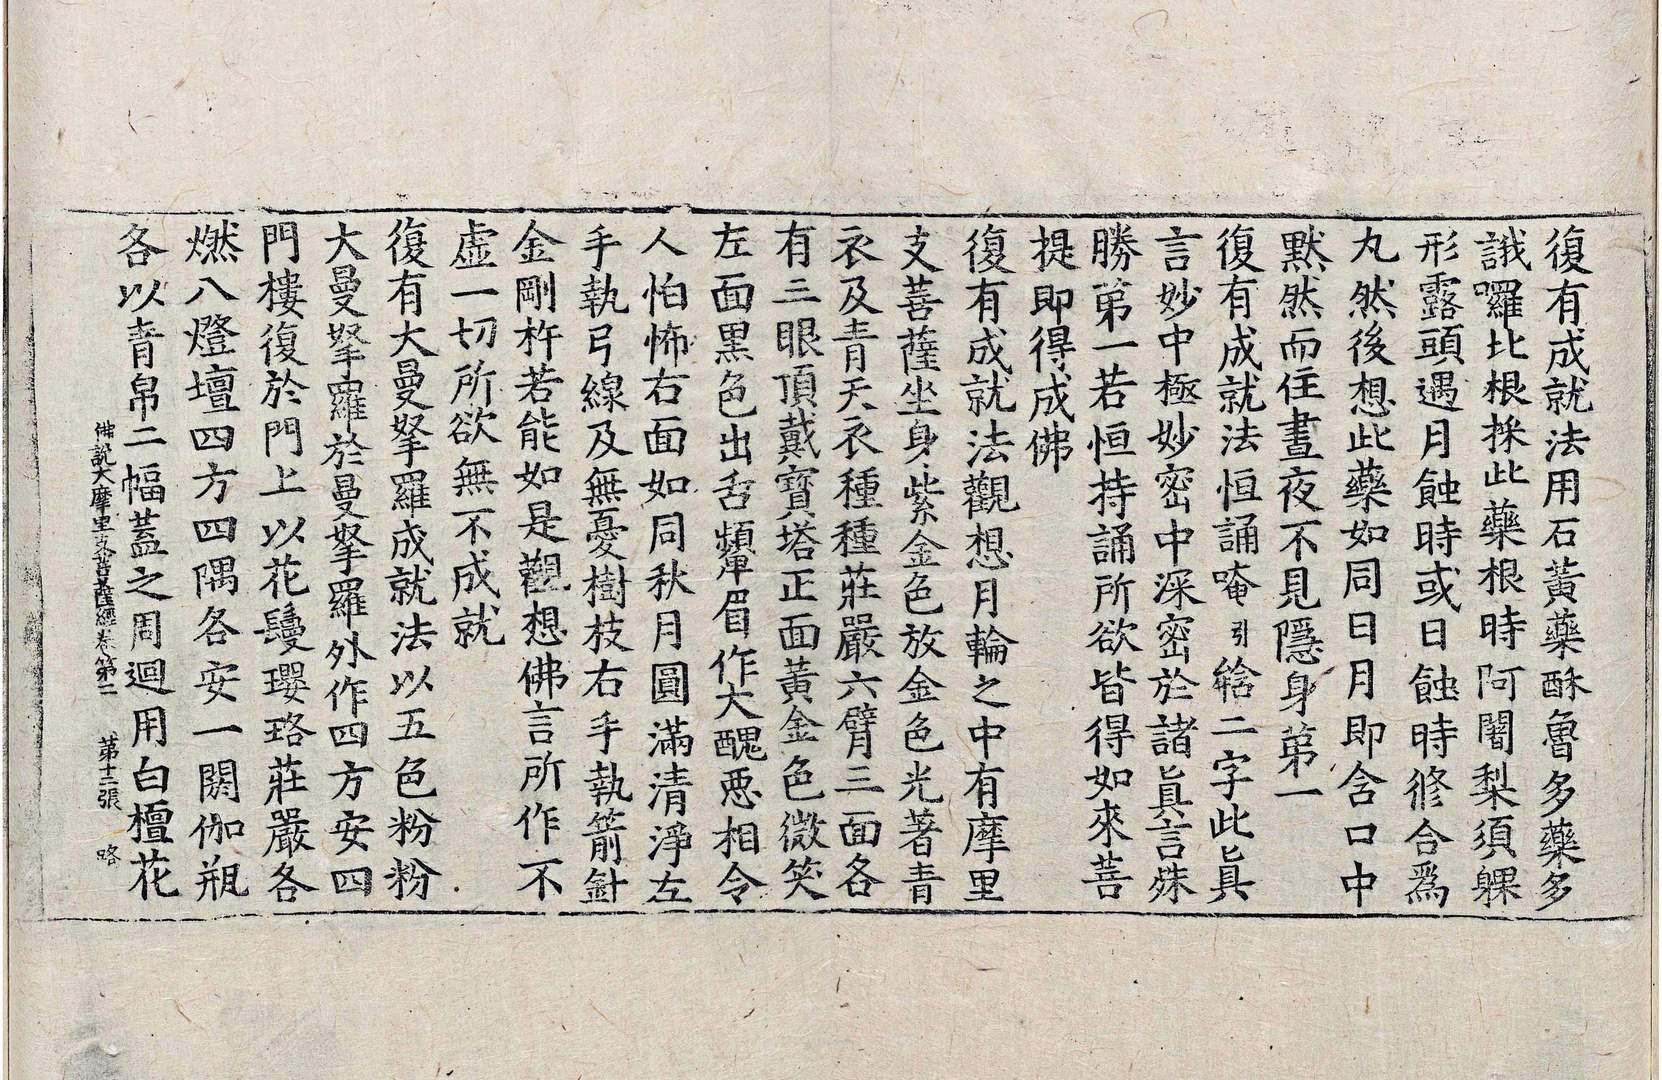 復有成就法用石黃藥酥魯多藥多
誐囉比根採此藥根時阿闍梨須躶
形露頭遇月蝕時或日蝕時修合爲
丸然後想此藥如同日月即含口中
默然而住晝夜不見隱身第一
復有成就法恒誦唵引𤚥二字此眞
言妙中極妙密中深密於諸眞言殊
勝第一若恒持誦所欲皆得如來菩
提即得成佛
復有成就法觀想月輪之中有摩里
支菩薩坐身紫金色放金色光著青
衣及青天衣種種莊嚴六臂三面各
有三眼頂戴寶塔正面黃金色微笑
左面黑色出舌顰眉作大醜惡相令
人怕怖右面如同秋月圓滿清淨左
手執弓線及無憂樹枝右手執箭針
金剛杵若能如是觀想佛言所作不
虛一切所欲無不成就
復有大曼拏羅成就法以五色粉粉
大曼拏羅於曼拏羅外作四方安四
門樓復於門上以花鬘瓔珞莊嚴各
燃八燈壇四方四隅各安一閼伽瓶
各以青帛二幅蓋之周迴用白檀花
佛說大摩里支菩薩經卷第二 第十二張 咯